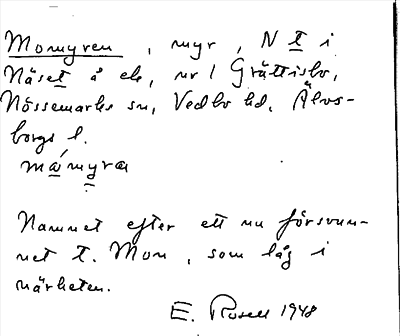 Momyren, myr, N t i
Näset å ek, nr 1 Grättisbo,
Nössemarks sn, Vedbo hd, Älvs-
borgs l.
mámyra
Namnet efter ett nu försvun-
net t. Mon, som låg i
närheten.
E. Rosell 1948